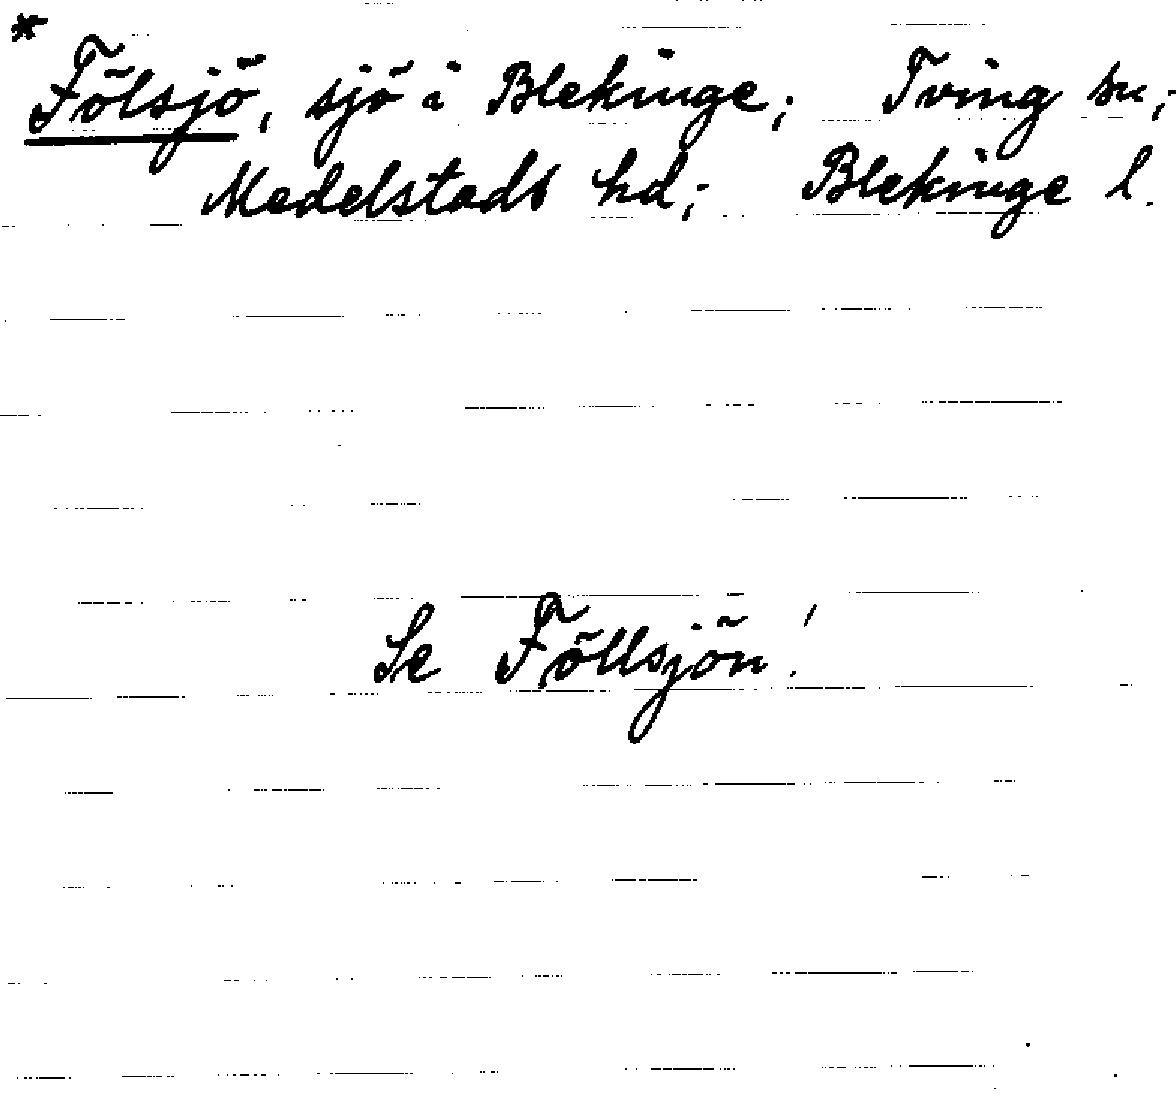 * Fölsjö, sjö i Blekinge; Tving sn;
Medelstads hd; Blekinge l.
Se Föllsjön!